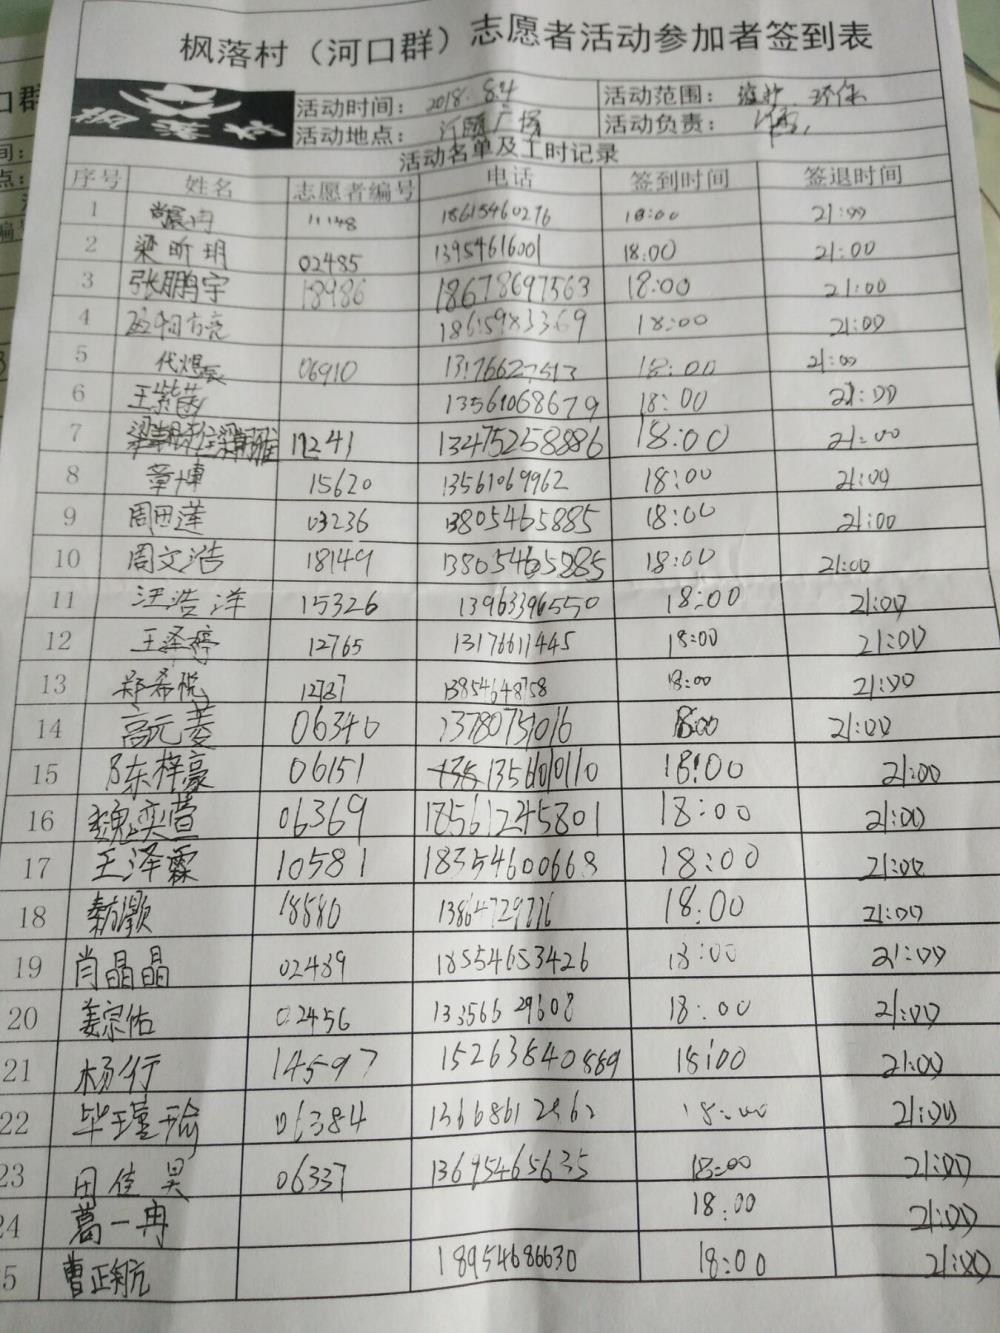 枫落村（河口群）志愿者活动参加者签到表
枫落村
活动时间： 2018.8.4 活动范围： 环保
活动地点： 广场 活动负责：
活动名单及工时记录
序号 姓名 志愿者编号 电话 签到时间 签退时间
1 11148 18615460276 18:00 21:00
2 梁昕玥 02485 13954616001 18:00 21:00
3 张鹏宇 18986 18678697563 18:00 21:00
4 18615983369 18:00 21:00
5 代煜 06910 13176627513 18:00 21:00
6 王紫 13561068679 18:00 21:00
7 11241 13475258886 18:00 21:00
8 章博 15620 13561069962 18:00 21:00
9 周田莲 03236 13805465885 18:00 21:00
10 周文浩 18149 13805465885 18:00 21:00
11 汪浩洋 15326 13963396550 18:00 21:00
12 王泽婷 12765 13176611445 18:00 21:00
13 郑希悦 12787 13854648758 18:00 21:00
14 高元菱 06340 13780751016 18:00 21:00
15 陈梓豪 06151 13561010110 18:00 21:00
16 魏奕萱 06369 18561245801 18:00 21:00
17 王泽霖 10581 18354600668 18:00 21:00
18 18880 13864729776 18:00 21:00
19 肖晶晶 02489 18554653426 18:00 21:00
20 姜宗佑 02456 13356629608 18:00 21:00
21 杨行 14597 15263840889 18:00 21:00
22 毕瑾瑜 06384 13668612862 18:00 21:00
23 田佳昊 06337 13695465635 18:00 21:00
24 葛一冉 18:00 21:00
5 曹正航 18954686630 18:00 21:00